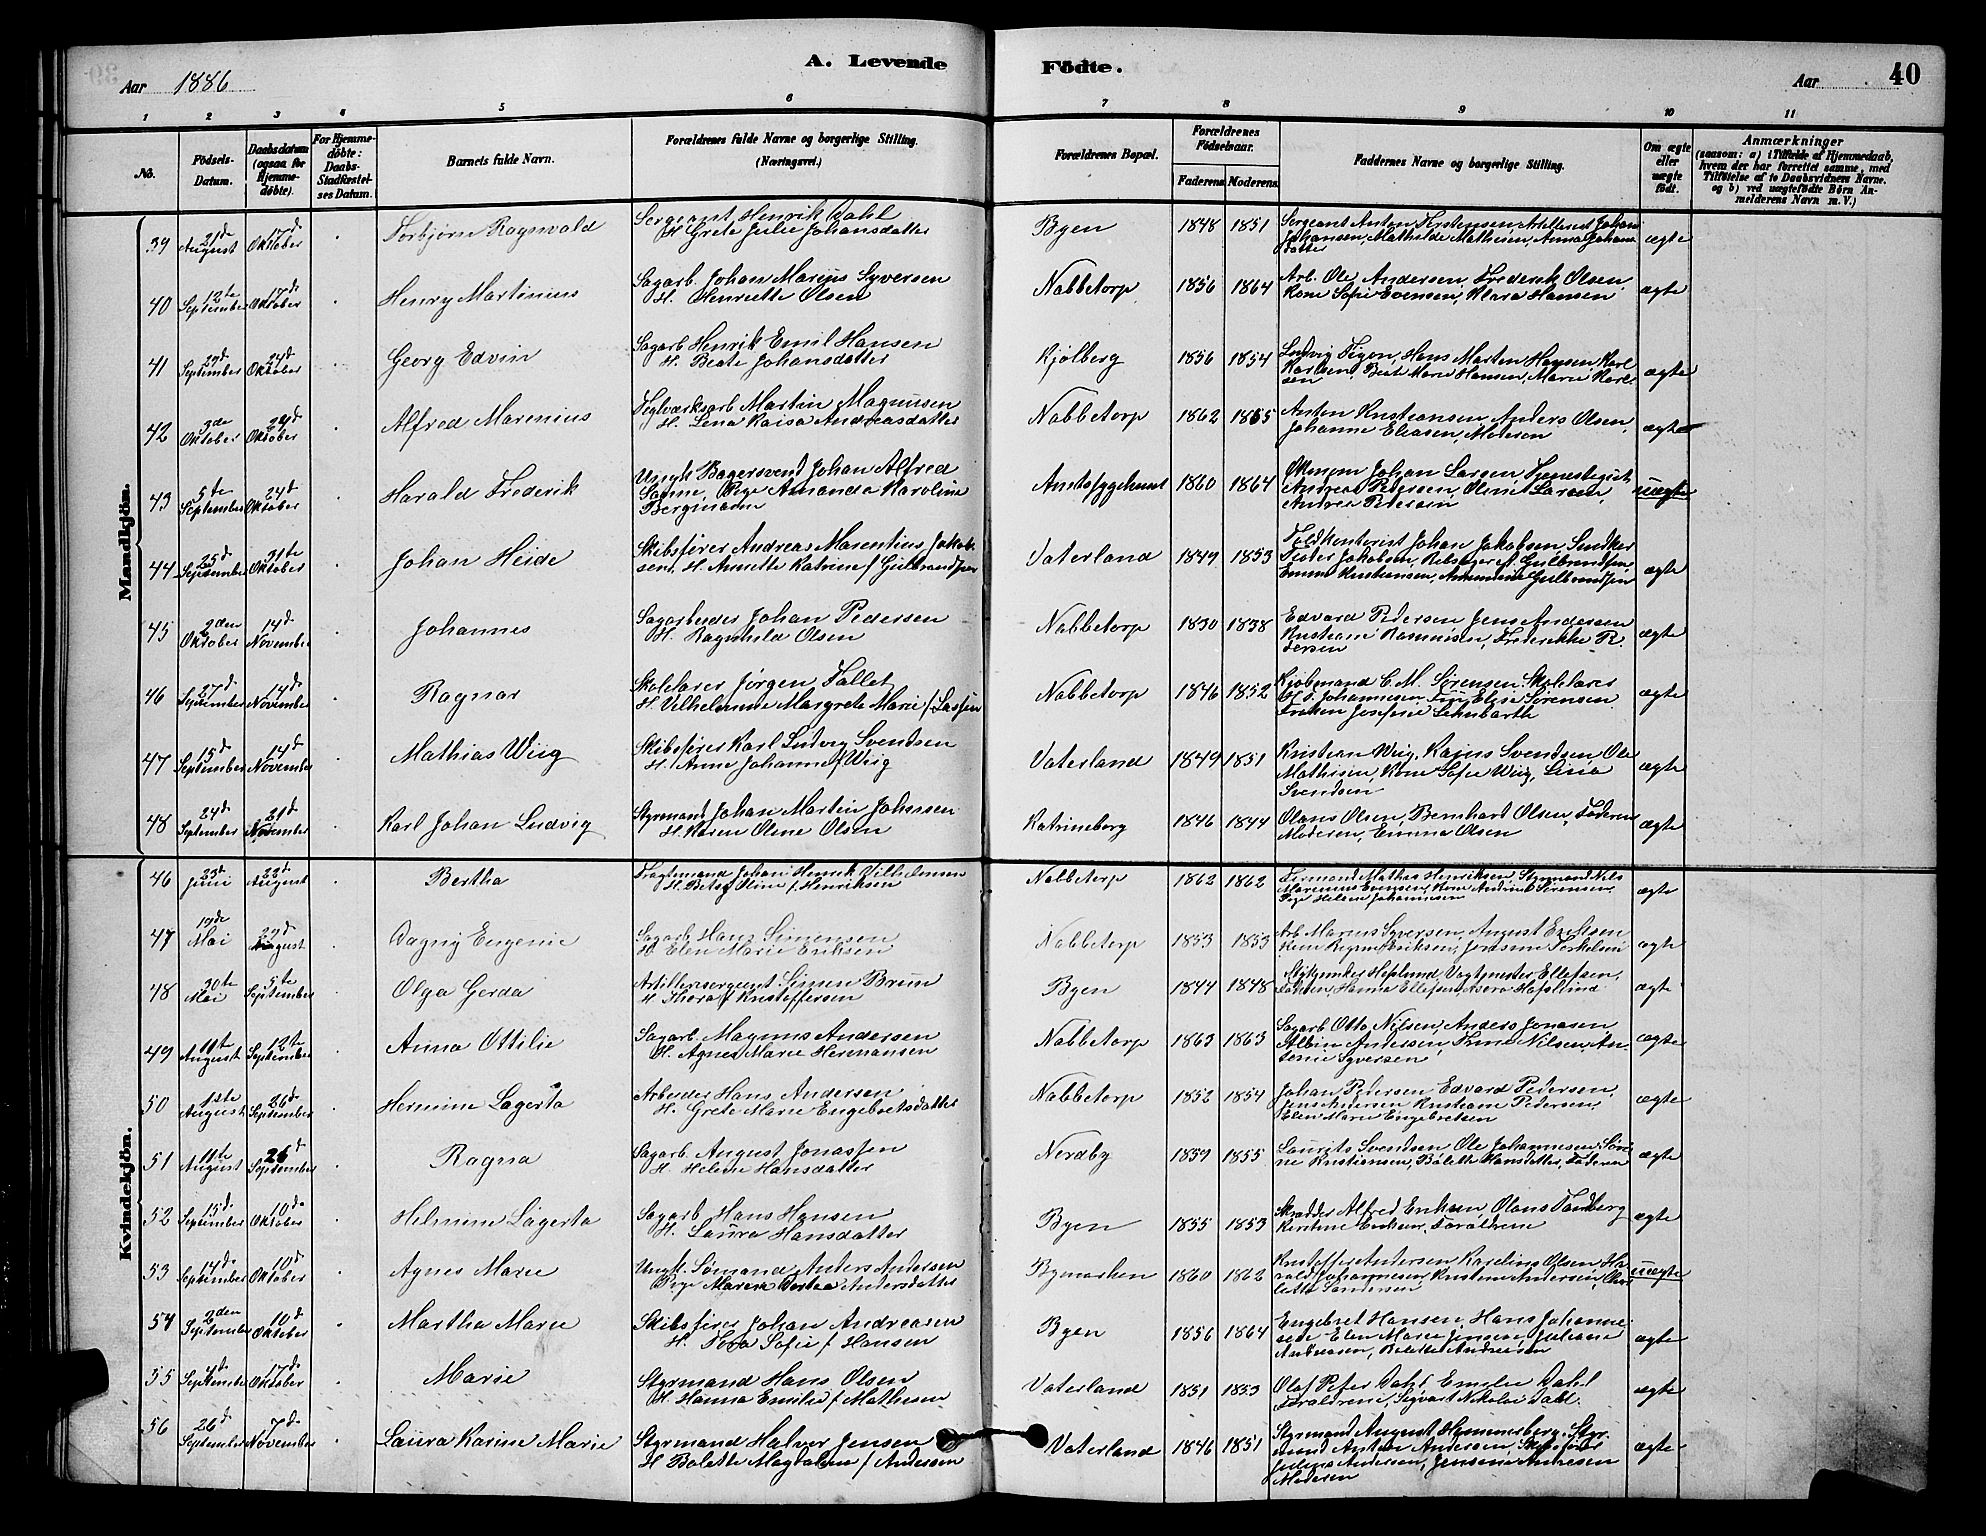 A. Levende Fødte.
Aar 1886
Aar 40
1 2 3 4 5 6 7 8 9 10 11
No.
Fødsels-Datum.
Daabsdatum (ogsaa for Hjemmedøbte).
For Hjemmedøbte: Daabs-Stadfæstelses Datum.
Barnets fulde Navn.
Forældrenes fulde Navne og borgerlige Stilling. (Næringsvei.)
Forældrenes Bopæl.
Forældrenes Fødselsaar.
Faderens Moderens
Faddernes Navne og borgerlige Stilling.
Om ægte eller uægte født.
Anmærkninger (saasom: a) i Tilfælde af Hjemmedaab, hvem der har forrettet samme, med Tilføielse af to Daabsvidners Navne, og b) ved uægtefødte Børn Anmelderens Navn m.V.)
Mandkjön.
39 21de August 17de Oktober Torbjørn Ragnvald Sergeant Henrik Dahl
H. Grete Julie Johansdatter Byen 1848 1851 ægte
40 12te September 17de Oktober Henry Martinius Sagarb. Johan Marius Syversen
H. Henriette Olsen Nabbetorp 1856 1864 Arb. Ole Andersen, Frederik Olsen,
Kone Sofie Evensen, Klara Hansen ægte
41 29d September 24d Oktober Georg Edvin Sagarb Henrik Emil Hansen
H. Beate Johansdatter Kjølberg 1856 1854 Ludvig Tigen, Hans Marten Hansen, Karl
Karlsen, Beate Marie Hansen, Marie Karlsen ægte
42 3de Oktober 24d Oktober Alfred Marenius Teglværksarb Martin Magnusen
H. Lena Kaisa Andreasdatter Nabbetorp 1862 1865 Anton Kristiansen, Anders Olsen,
Johanne Eliasen, Moderen ægte
43 5te September 24d Oktober Harald Frederik Ungk. Bagersvend Johan Alfred
Sanne, Pige Amanda Karolina
Bergmann Amtssygehuset 1860 1864 Økonom Johan Larsen,
Andreas Pedersen, Oline Larsen,
Andrea Petersen uægte
44 25d September 31te Oktober Johan Heide Skibsfører Andreas Marentius Jakobsen,
H. Annette Katrine f. Gulbrandsen Vaterland 1849 1853 Johan Jakobsen,
Peter Jakobsen, Gulbrandsen,
Emma Kristiansen, Gulbrandsen ægte
45 2den Oktober 14d November Johannes Sagarbeider Johan Pedersen
H. Ragnhild Olsen Nabbetorp 1830 1838 Edvard Pedersen, Jens Andersen
Kristian Rasmusen, Frederikke Pedersen ægte
46 27d September 14d November Ragnar Skolelærer Jørgen Tallet
H. Vilhelmine Margrete Marie f. Lassen Nabbetorp 1846 1852 Kjøbmand C. M. Sørensen, Skolelærer
Johannesen, Elise Sørensen
Frøken Josefine Schubarth ægte
47 15d September 14d November Mathias Wiig Skibsfører Karl Ludvig Svendsen
H. Anne Johanne f. Wiig Vaterland 1849 1851 Kristian Wiig, Kajus Svendsen, Ole
Mathisen, Kone Sofie Wiig, Lina
Svendsen ægte
48 24d September 21d November Karl Johan Ludvig Styrmand Johan Martin Johnsen
H. Karen Oline Olsen Katrineborg 1846 1844 Olaus Olsen, Bernhard Olsen, Faderen
Moderen, Emma Olsen ægte
Kvindekjön.
46 23d Juni 22d August Bertha Fragtemand Johan Henrik Vilhelmsen
H. Betsy Oline f. Henriksen Nabbetorp 1862 1862 Mathis Henriksen, Styrmand Nils
Marenius Evensen, Kone Andrine Sørensen,
Pige Helene Johannesen ægte
47 19de Mai 29d August Dagny Eugenie Sagarb. Hans Simensen
H. Elen Marie Eriksen Nabbetorp 1853 1853 Arb Marius Syversen, August Eriksen
Eriksen, Jensine Torkelsen ægte
48 20te Mai 5te September Olga Gerda Artillerisergeant Simen Bruun
H. Thora f. Kristoffersen Byen 1844 1848 Vagtmester Ellefsen,
Hanna Ellefsen ægte
49 11te August 12te September Anna Ottilie Sagarb. Magnus Andersen
H. Agnes Marie Hermansen Nabbetorp 1863 1863 Sagarb Otto Nilsen, Anders Jonasen,
Albin Andersen, Trine Nilsen, Antonie Syversen ægte
50 1ste August 26d September Hermine Lagerta Arbeider Hans Andersen
H. Grete Marie Engebretsdatter Nabbetorp 1852 1854 Johan Pedersen, Edvard Pedersen,
Kristiane Pedersen,
Elen Marie Engebretsen ægte
51 11te August 26 September Ragna Sagarb. August Jonassen
H. Helene Hansdatter Nordby 1859 1855 Laurits Svendsen, Ole Johannesen,
Kristiansen, Bolette Hansdatter, Faderen ægte
52 15d September 10de Oktober Helmine Lagerta Sagarb Hans Hansen
H. Laura Hansdatter Byen 1855 1853 Skrædder Alfred Eriksen, Olaus Tandberg
Kirstine Eriksen, Forældrene ægte
53 14d September 10d Oktober Agnes Marie Ungk. Sømand Anders Andersen
Pige Maren Dorthea Andersdatter Bymarken 1860 1862 Kristoffer Andersen, Karoline Olsen, Harald Johannesen, Kristine Andersen uægte
54 2den September 10d Oktober Martha Marie Skibsfører Johan Andreasen
H. Tora Sofie f. Hansen Byen 1856 1864 Engebret Hansen, Hans Johannesen
Elen Marie Jensen, Juliane
Andreasen, Bolette Andreasen ægte
55 4d September 17de Oktober Marie Styrmand Hans Olsen
H. Hanna Emilie f. Mathesen Vaterland 1851 1853 Olaf Peter Dahl, Emilie Dahl
Forældrene, Sigvart Nikolai Dahl ægte
56 26d September 7de November Laura Karine Marie Styrmand Halvor Jensen
H. Bolette Magdalene f. Andersen Vaterland 1846 1851 Styrmand August Hemmersberg, Styrmand Anton Andersen, Skibsfører
Julius Andersen, Jensine Andresen
Moderen ægte